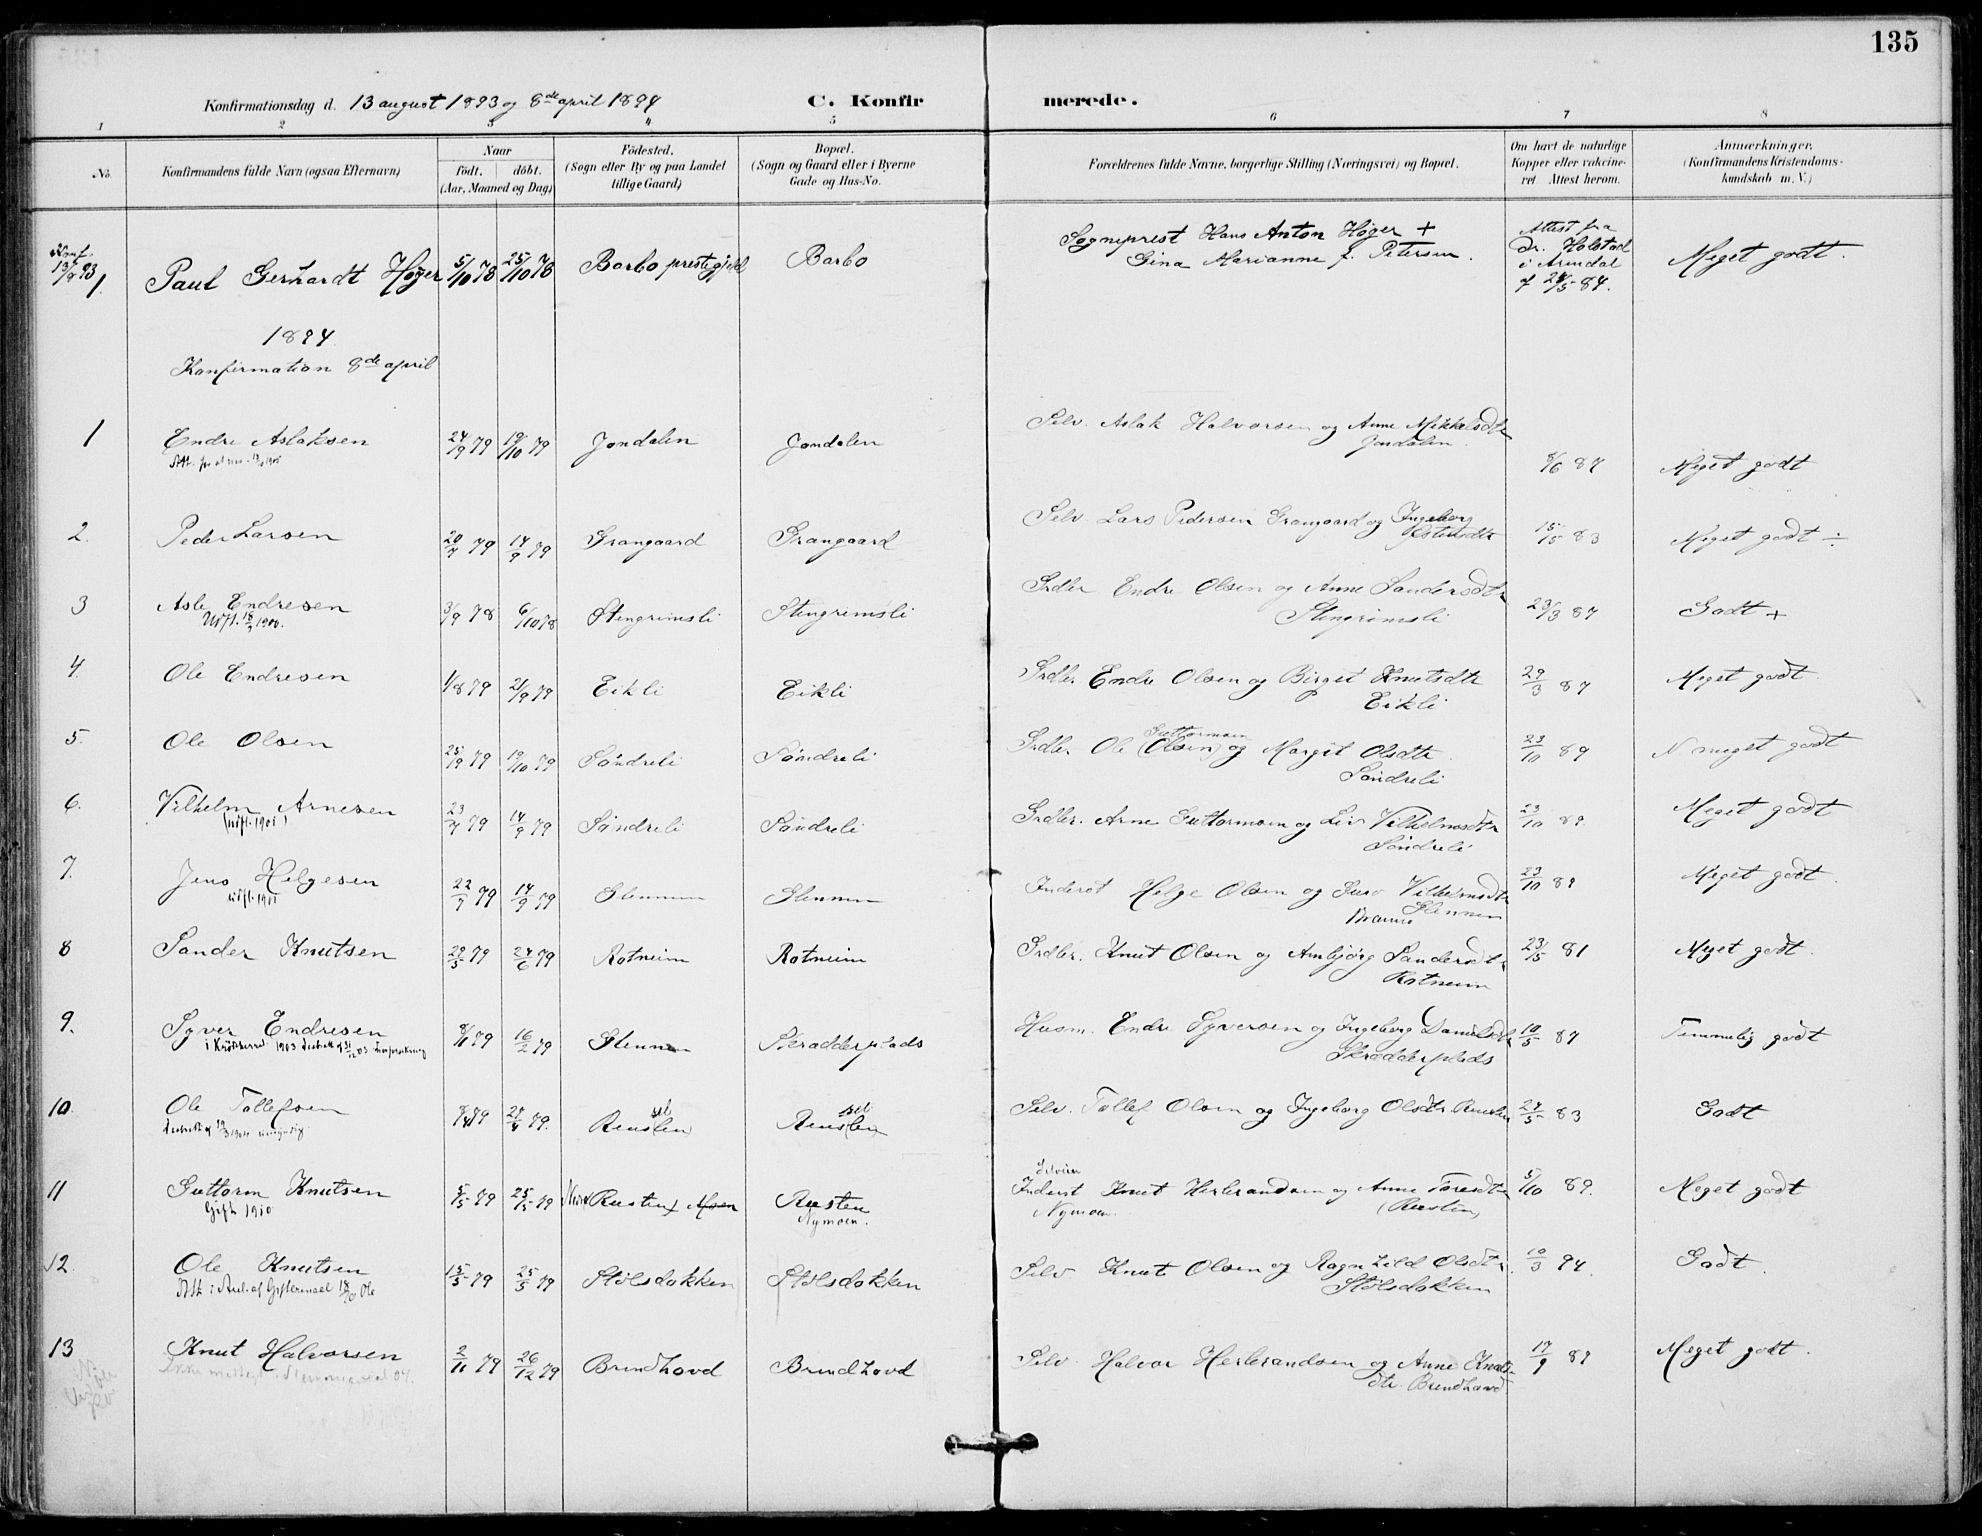 135
Konfirmationsdag d. 13 august 1893 og 8de april 1894 C. Konfir merede.
1 2 3 4 5 6 7 8
No. Konfirmandens fulde Navn (ogsaa Efternavn) Naar født. døbt. (Aar, Maaned og Dag) Fødested. (Sogn eller By og paa Landet tillige Gaard) Bopæl. (Sogn og Gaard eller i Byerne Gade og Hus-No. Forældrenes fulde Navne, borgerlige Stilling (Næringsvei) og Bopæl. Om havt de naturlige Kopper eller vakcineret. Attest herom. Anmærkninger. (Konfirmandens Kristendomskundskab m. V.)
Konf. 13/8 93
1 Paul Gerhardt Høyer 5/10 78 25/10 78 Barbo prestegjeld Barbo Sogneprest Hans Anton Høyer + Gina Marianne f. Petersen. Attest fra Dr. Holstad i Arendal af 24/5 84. Meget godt.
1894
Konfirmation 8de april
1 Endre Aslaksen 24/9 79 19/10 79 Jondalen Jondalen Selv. Aslak Halvorsen og Anne Mikkelsdtr Jondalen 8/6 87 Meget godt
2. Peder Larsen 20/7 79 14/9 79 Grangaard Grangaard Selv. Lars Pedersen Grangaard og Ingeborg 15/5 83 Meget godt ÷
3 Asle Endresen 3/9 78 6/10 78 Stengrimsli Stengrimsli Grdbr Endre Olsen og Anne Sandersdtr Stengrimsli 23/3 87 Godt +
Utfl. 18/7 1900.
4. Ole Endresen 1/8 79 21/9 79 Eikli Eikli Grdbr. Endre Olsen og Birgit Knutsdtr Eikli 29/3 87 Meget godt
5. Ole Olsen 25/9 79 19/10 79 Søndreli Søndreli Grdbr. Ole Guttormsen (Olsen) og Margit Olsdtr Søndreli 23/10 89 N. meget godt
6. Vilhelm Arnesen 23/7 79 14/9 79 Søndreli Søndreli Grdbr. Arne Guttormsen og Liv Vilhelmsdtr Søndreli 23/10 89. Meget godt
(utfl. 1901)
7. Jens Helgesen 22/7 79 14/9 79 Glennen Glennen Inderst Helge Olsen og Guro Vilhelmsdtr Glennen 23/10 89 Meget godt.
utfl. 1901
8 Sander Knutsen 29/5 79 24/6 79 Rotneim Rotneim Grdbr. Knut Olsen og Ambjørg Sandersdtr Rotneim 23/5 81 Meget godt.
9. Syver Endresen 8/1 79 16/2 79 Glennen Skradderplads Husm. Endre Syversen og Ingeborg Danielsdtr Skradderplads 10/5 87 Temmelig godt
10. Ole Tollefsen 8/4 79 27/4 79. Ruuslen Ruuslen Selv. Tollef Olsen og Ingeborg Olsdtr. 24/5 83 Godt
11 Guttorm Knutsen 5/5 79 25/5 79 Rusten Moen Rusten Nymoen. Inderst Knut Herbrandsen og Anne Toresdtr (Rusten) Nymoen. 5/10 89. Meget godt
Gift 1910
12. Ole Knutsen 15/5 79 25/5 79 Stølsdokken Stølsdokken Selv Knut Olsen og Ragnhild Olsdtr. Stølsdokken 10/3 94. Godt.
13 Knut Halvorsen 2/11 79 26/12 79 Brendhovd Brendhovd Selv. Halvor Herbrandsen og Anne Knutsdtr. Brendhovd 17/9 89 Meget godt.